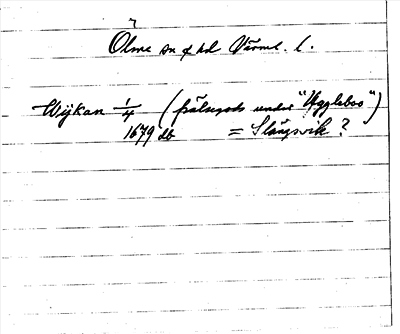 Ölme sn o hd Värml. l.
Wijkan 1/4 (frälsegods under "Uggleboo")
1679 db = Slängsvik?